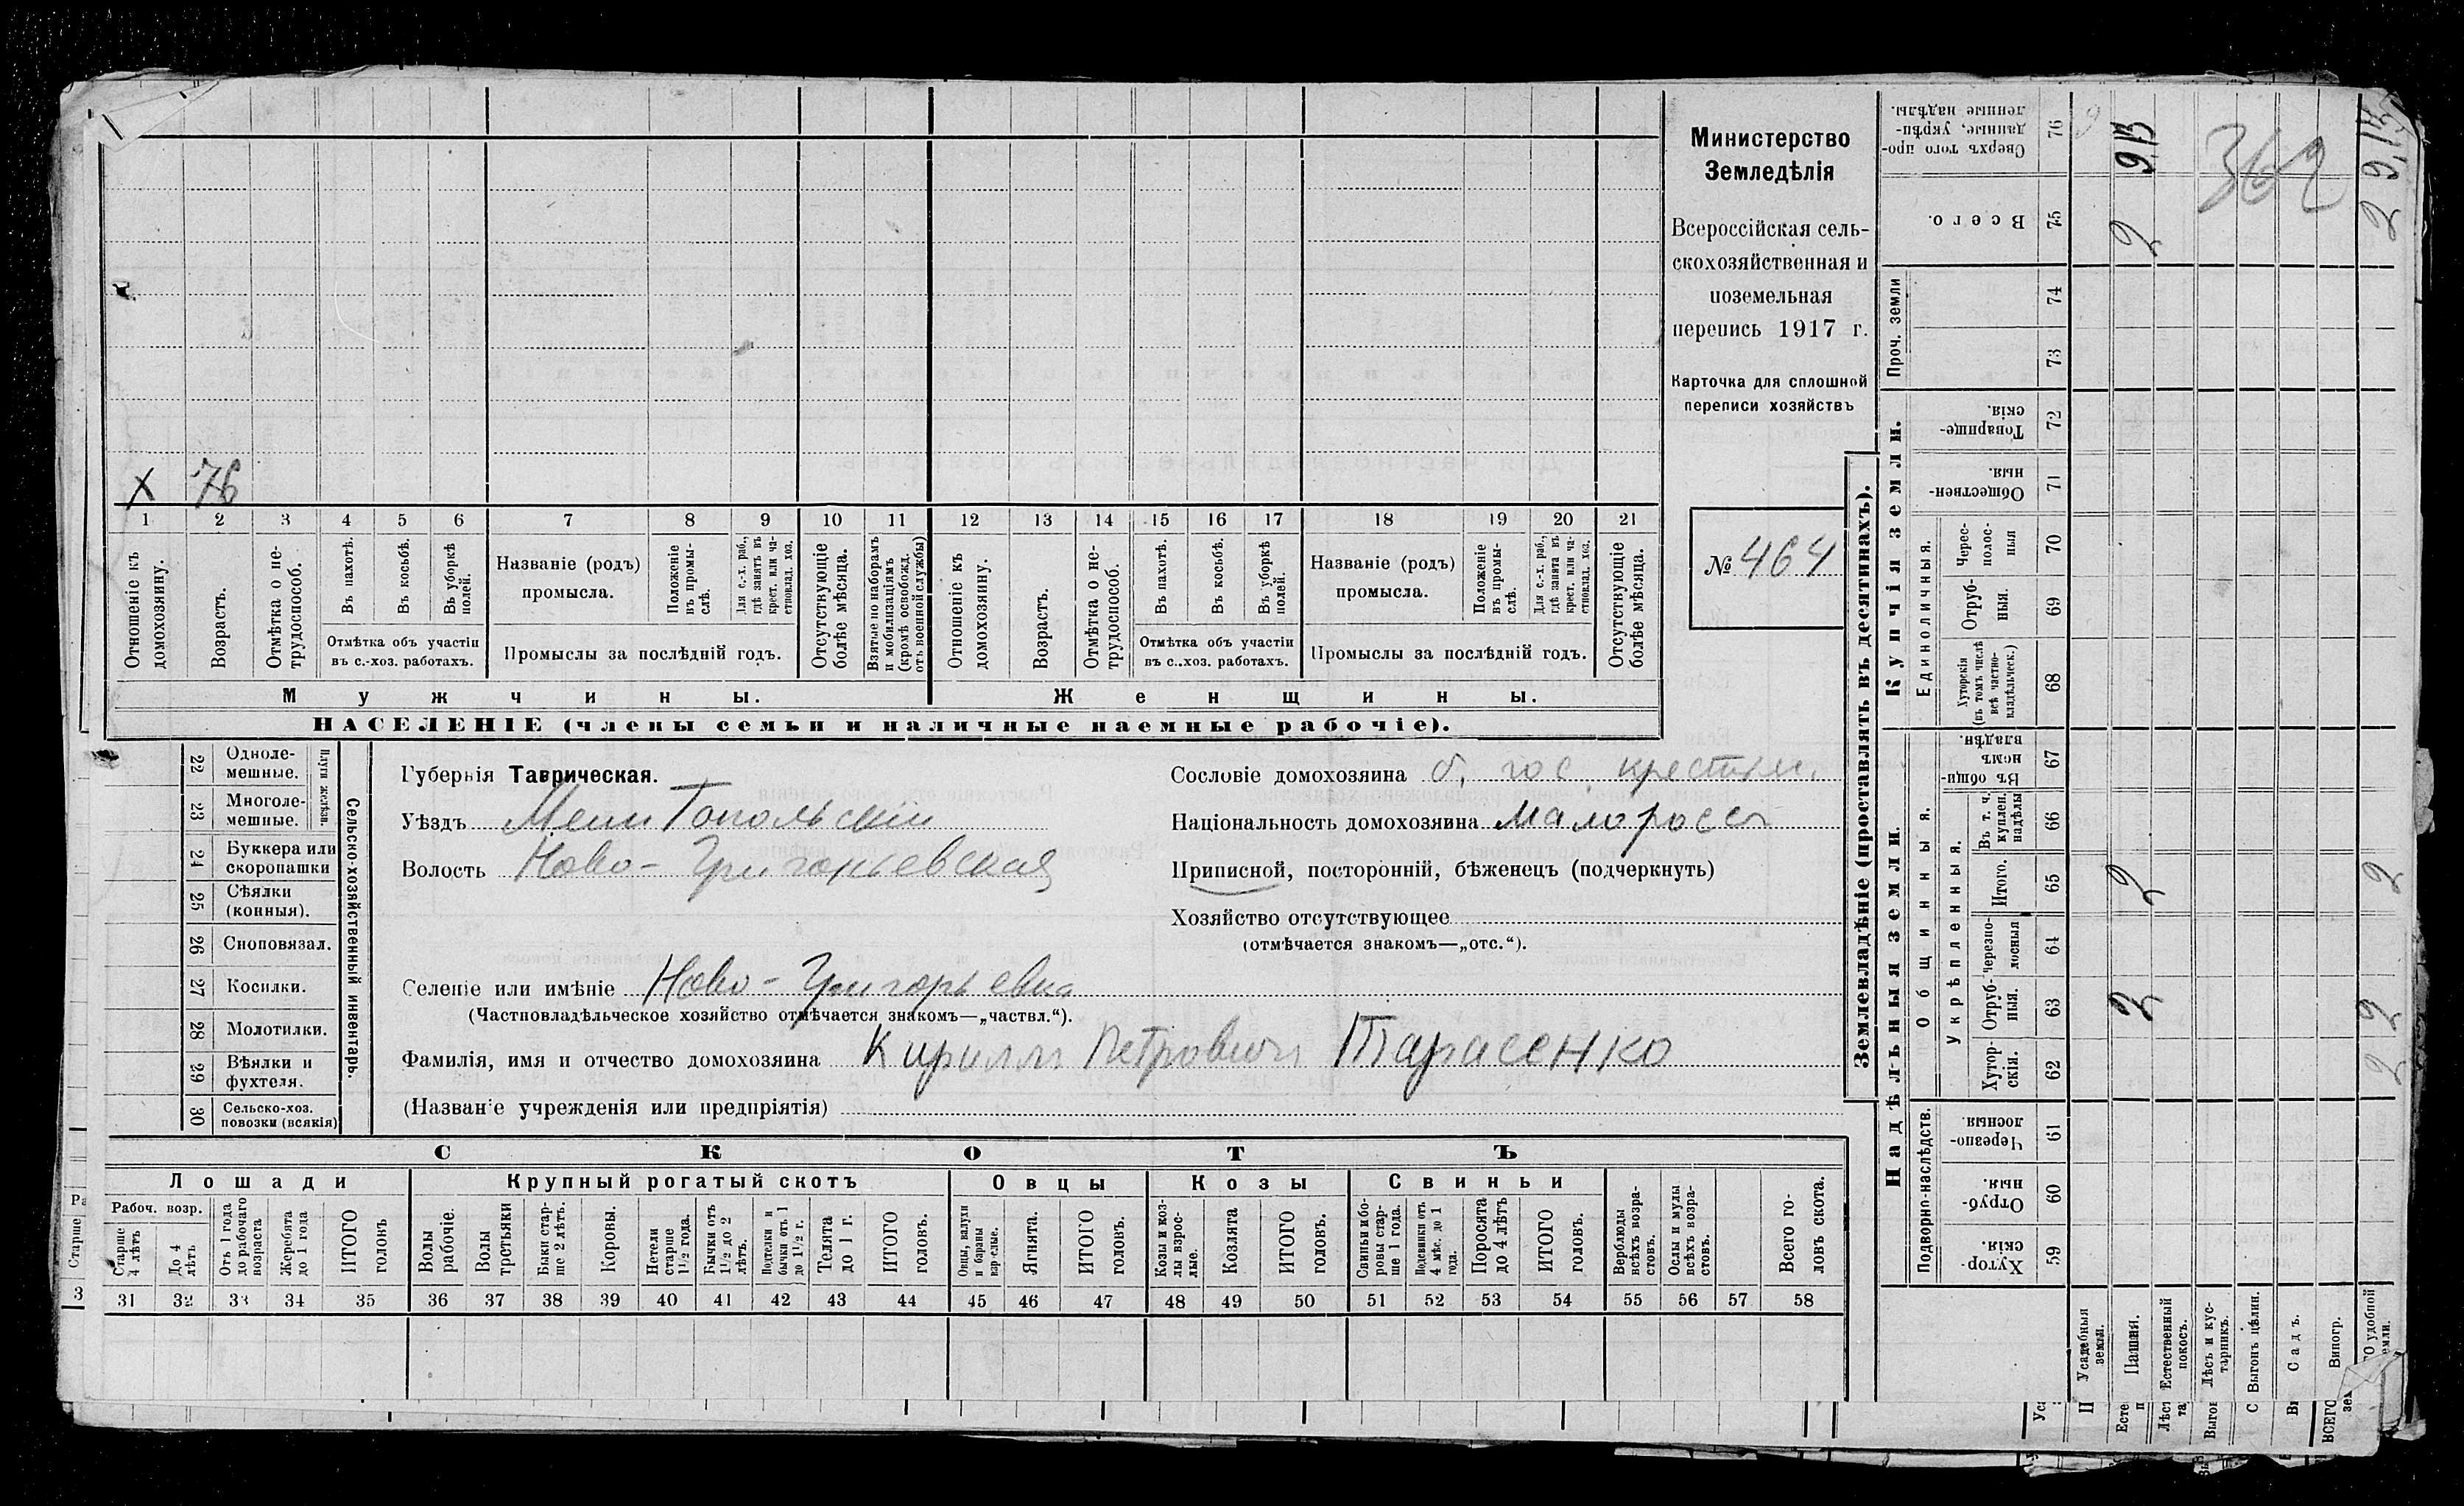 Министерство
Земледѣлія
Всероссійская сель-
скохозяйственная и
поземельная
перепись 1917 г.
Карточка для сплошной
переписи хозяйствъ
№ 464
X 76
1 2 3 4 5 6 7 8 9 10 11 12 13 14 15 16 17 18 19 20 21
Отношеніе къ домохозяину.
Возрастъ.
Отмѣтка о не-трудоспособ.
Въ пахотѣ.
Въ косьбѣ.
Въ уборкѣ полей.
Отмѣтка объ участіи
въ с.-хоз. работахъ.
Названіе (родъ)
промысла.
Положеніе въ промы-слѣ.
Для с.-х. раб., гдѣ занятъ въ крест. или ча-стновлад. хоз.
Промыслы за послѣдній годъ.
Отсутствующіе болѣе мѣсяца.
Взятые по наборамъ и мобилизаціямъ (кромѣ освобожд. отъ военной службы)
Отношеніе къ домохозяину.
Возрастъ.
Отмѣтка о не-трудоспособ.
Въ пахотѣ.
Въ косьбѣ.
Въ уборкѣ полей.
Отмѣтка объ участіи
въ с..хоз. работахъ.
Названіе (родъ)
промысла.
Положеніе въ промы-слѣ.
Для с.-х. раб., гдѣ занята въ крест. или ча-стновлад. хоз.
Промыслы за послѣдній годъ.
Отсутствующіе болѣе мѣсяца.
Мужчины.
Женщины.
НАСЕЛЕНІЕ (члены семьи и наличные наемные рабочіе).
22 Одноле-мешные.
23 Многоле-мешные.
Плуги желѣзн.
24 Буккера или скоропашки
25 Сѣялки (конныя).
26 Сноповязал.
27 Косилки.
28 Молотилки.
29 Вѣялки и фухтеля.
30 Сельско-хоз. повозки (всякія)
Сельско-хозяйственный инвентарь.
Губернія Таврическая.
Уѣздъ Мелитопольскій
Волость Ново-Григорьевская
Селеніе или имѣніе Ново-Григорьевка
(Частновладѣльческое хозяйство отмѣчается знакомъ—„частвл.“).
Фамилія, имя и отчество домохозяина Кирилл Петрович Тарасенко
(Названіе учрежденія или предпріятія)
Сословіе домохозяина б. гос. крестьян.
Національность домохозяина малоросс
Приписной, посторонній, бѣженецъ (подчеркнуть)
Хозяйство отсутствующее
(отмѣчается знакомъ—„отс.“).
СКОТЪ
Лошади
Крупный рогатый скотъ
Овцы
Козы
Свиньи
Рабоч. возр.
Старше 4 лѣтъ
До 4 лѣтъ
Отъ 1 года до рабочаго возраста
Жеребята до 1 года
ИТОГО головъ
Волы рабочіе.
Волы третьяки
Быки стар-ше 2 лѣтъ.
Коровы.
Нетели старше 1½ года.
Бычки отъ 1½ до 2 лѣтъ.
Подтелки и бычки отъ 1 до 1½ г.
Телята до 1 г.
ИТОГО головъ.
Овцы, валухи и бараны взрослые.
Ягнята.
ИТОГО головъ.
Козы и коз-лы взрос-лые.
Козлята
ИТОГО головъ.
Свиньи и бо-ровы стар-ше 1 года.
Подсвинки отъ 4 мѣс. до 1 года.
Поросята до 4 лѣтъ
ИТОГО головъ.
Верблюды всѣхъ возра-стовъ.
Ослы и мулы всѣхъ возра-стовъ.
Всего го-ловъ скота.
31 32 33 34 35 36 37 38 39 40 41 42 43 44 45 46 47 48 49 50 51 52 53 54 55 56 57 58
Землевладѣніе (проставлять въ десятинахъ).
Надѣльныя земли.
Купчія земли.
Проч. земли
Подворно-наслѣдств.
Общинныя.
Укрѣпленныя.
Единоличныя.
59 Хутор-скія.
60 Отруб-ныя.
61 Черезпо-лосныя
62 Хутор-скія.
63 Отруб-ныя.
64 Черезпо-лосныя
65 Итого.
66 Въ т. ч. куплен. надѣлы
67 Въ общи-номъ владѣн.
68 Хуторскія (въ томъ числѣ всѣ частно-владѣльческ.)
69 Отруб-ныя.
70 Черес-полос-ныя
71 Обществен-ныя.
72 Товарище-скія.
73
74
75 Всего.
76 Сверхъ того про-данные, укрѣп-ленные надѣлы.
Усадебныя земли.
Пашня. 2 2 2 913
Естественный покосъ.
Лѣсъ и кус-тарникъ.
Выгонъ цѣлин.
Садъ.
Виногр.
удобной земли. 2 2 2 2 913
362